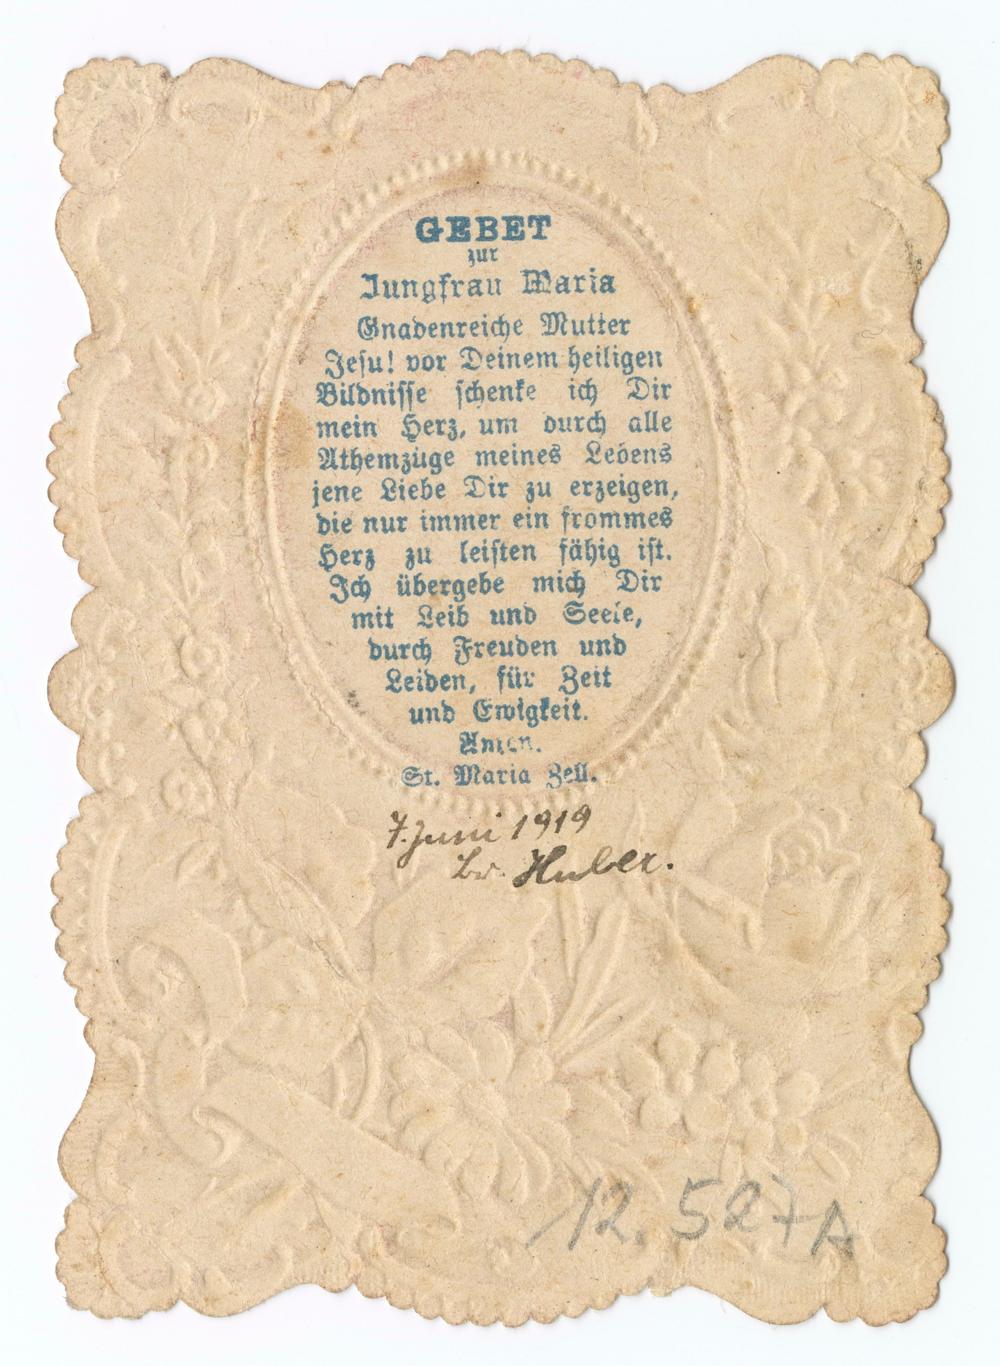 GEBET
zur
Jungfrau Maria
Gnadenreiche Mutter
Jesu! vor Deinem heiligen
Bildnisse schenke ich Dir
mein Herz, um durch alle
Athemzüge meines Lebens
jene Liebe Dir zu erzeigen,
die nur immer ein frommes
Herz zu leisten fähig ist.
Ich übergebe mich Dir
mit Leib und Seele,
durch Freuden und
Leiden, für Zeit
und Ewigkeit.
Amen.
St. Maria Zell.
7. Juni 1919
Huber.
12.527A